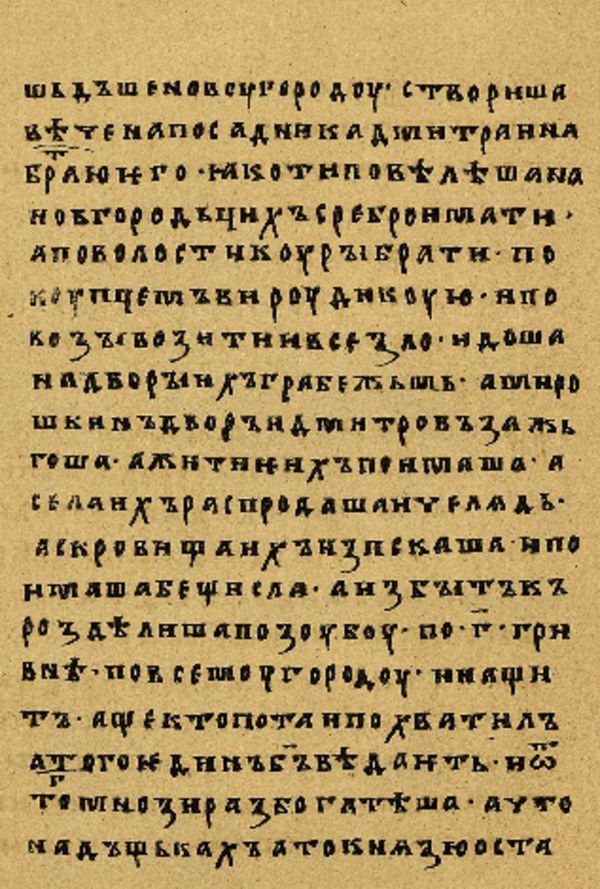 шьдъшемовсугородоу· створиша
вѣченапосадникадмитраина
братюѥго·ꙗкотиповѣлѣшана
новгородьцихъсребромати·
аповолостичкоурꙑбрати·по
коупцемъвироудикоую·ипо
возꙑвозитиивсезло·идоша
надворꙑихъграбежьмь·амиро
шкинъдворъидмитровъзажь
гоша·ажитиѥихъпоимаша·а
селаихъраспродашаичелѧдь·
аскровищаихъизискаша·ипо
имашабещисла·аизбꙑтъкъ
роздѣлишапозоубоу·по·г҃·гри
внѣ·повсемоугородоу·инащи
тъ·ащектопотаипохватилъ
атогоѥдинъб҃ъвѣдаѥть·иѿ
томнозиразбогатѣша·ачто
надъщькахъатокнѧзюоста